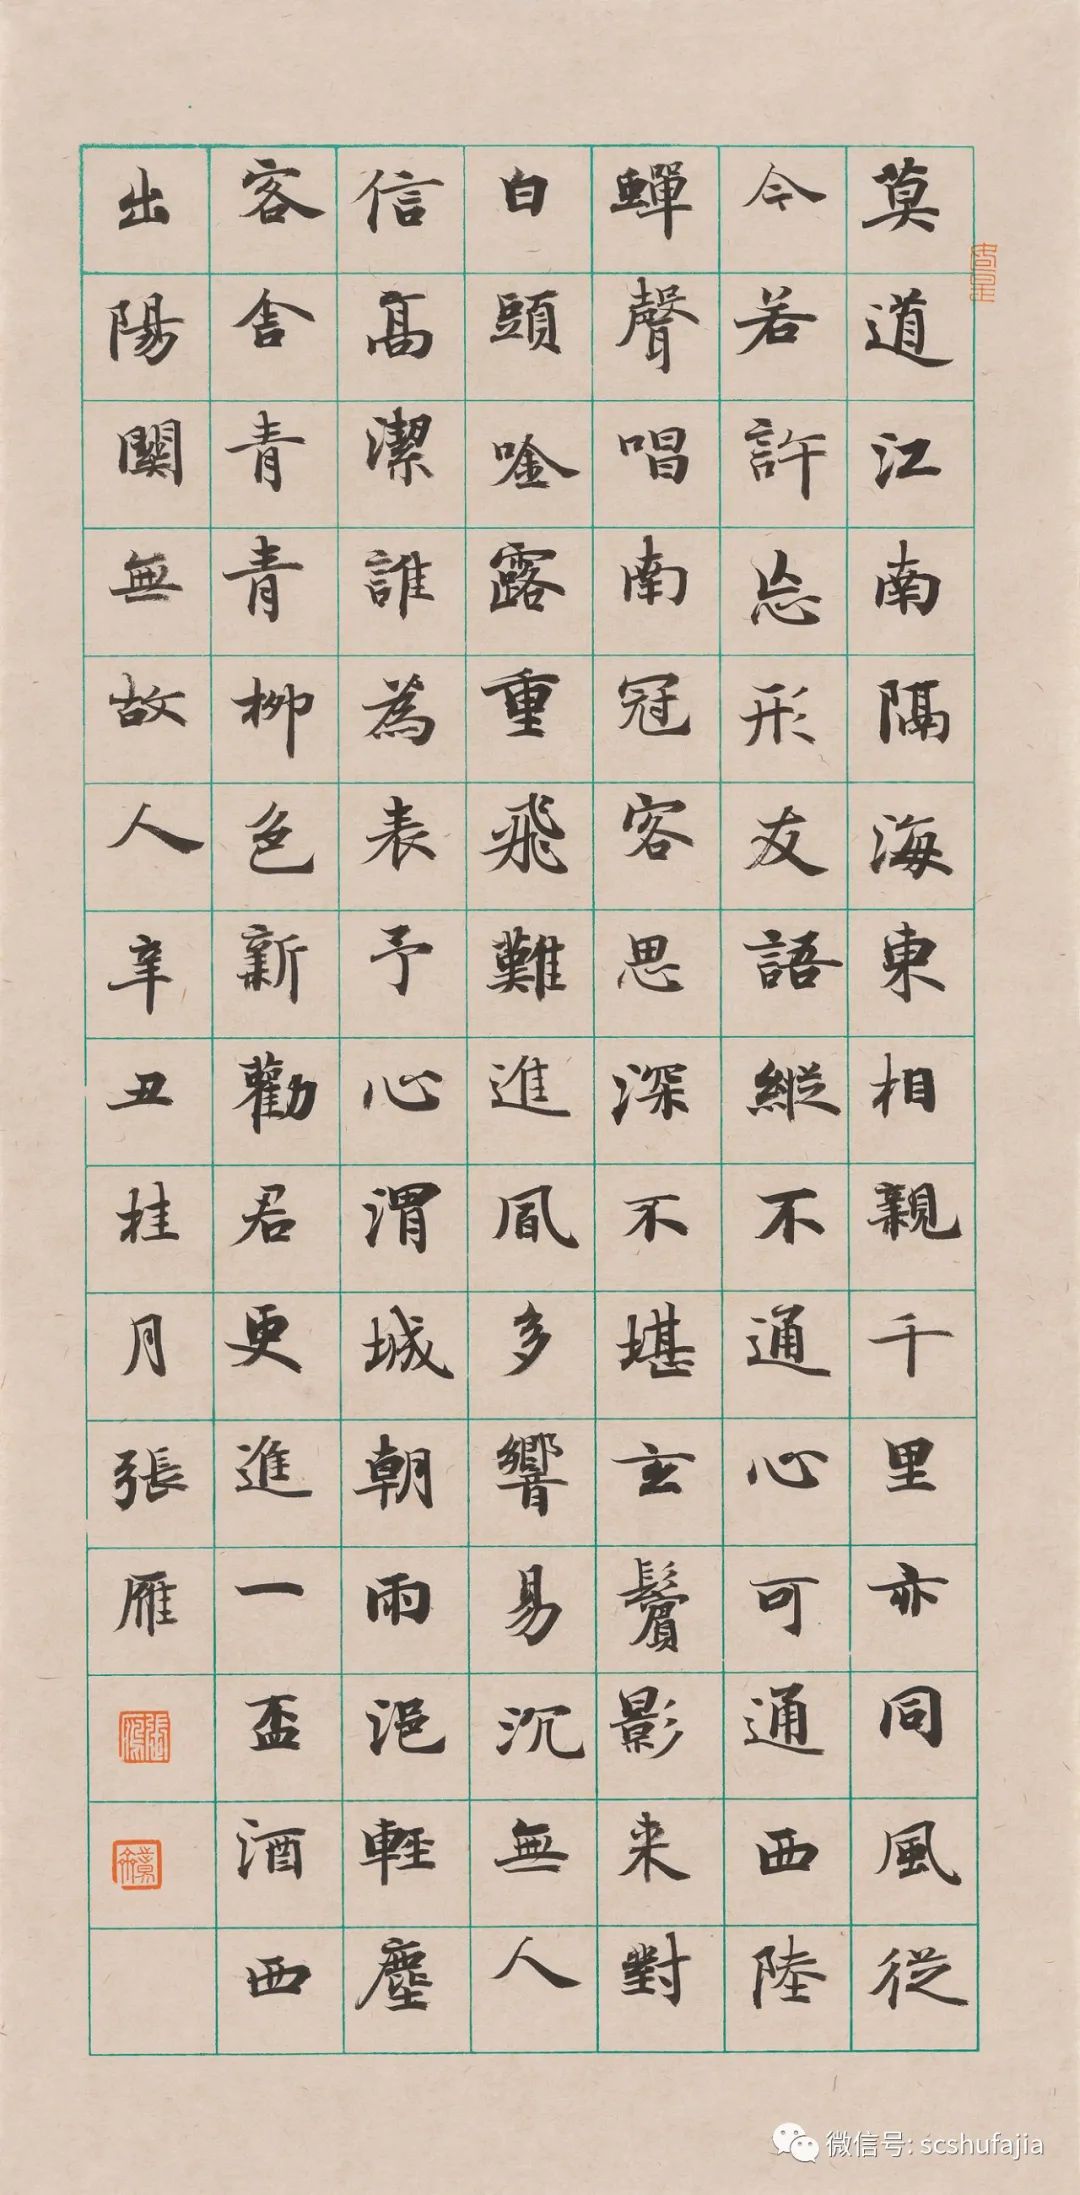 莫道江南隔海東相親千里亦同風從
今若許忘形友語縱不通心可通西陸
蟬聲唱南冠客思深不堪玄鬢影来對
白頭唫露重飛難進風多響易沉無人
信高潔誰為表予心渭城朝雨浥輕塵
客舍青青柳色新勸君更進一盃酒西
出陽關無故人辛丑桂月張雁
微信号: scshufajia